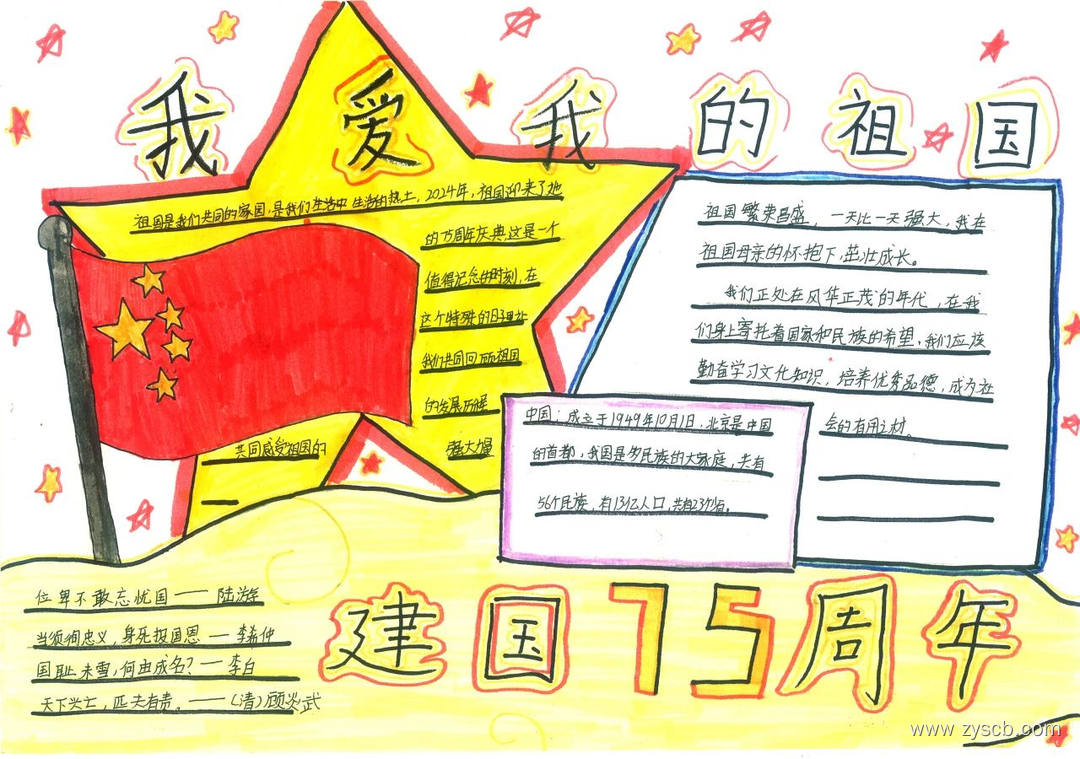 我爱我的祖国
祖国是我们共同的家园，是我们生活中生活的热土，2024年，祖国迎来了她
的75周年庆典这是一个
值得记念的时刻，在
这个特殊的日子里让
我们共同回顾祖国
的发展历程
共同感受祖国的
强大
祖国繁荣昌盛，一天比一天强大，我在
祖国母亲的怀抱下，茁壮成长。
我们正处在风华正茂的年代，在我
们身上寄托着国家和民族的希望，我们应该
勤奋学习文化知识，培养优秀品德，成为社
会的有用之材。
中国：成立于1949年10月1日，北京是中国
的首都，我国是多民族的大家庭，共有
56个民族，有13亿人口，共有23个省。
位卑不敢忘忧国——陆游
当须徇忠义，身死报国恩——李希仲
国耻未雪，何由成名？——李白
天下兴亡，匹夫有责。——（清）顾炎武
建国75周年
www.zyscb.com